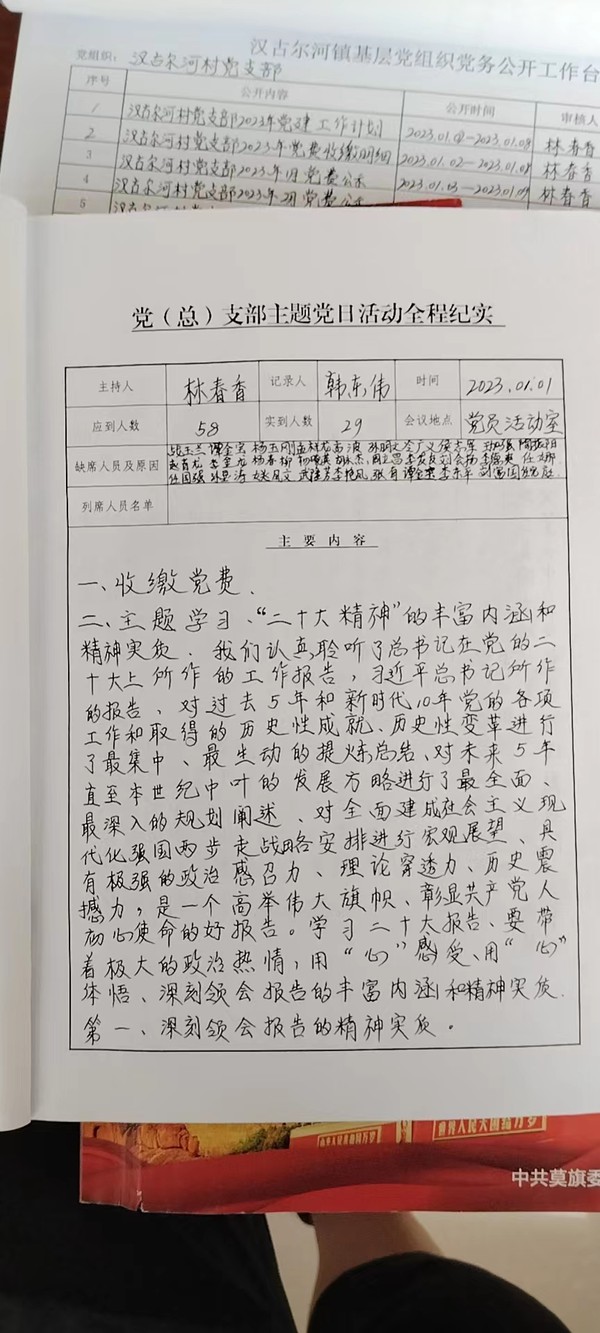 汉古尔河镇基层党组织党务公开工作台
党组织: 汉古尔河村党支部
序号 公开内容 公开时间 审核人
1 汉古尔河村党支部2023年党建工作计划 2023.01.02-2023.01.08 林春香
2 汉古尔河村党支部2023年党费收缴明细 2023.01.02-2023.01.08 林春香
3 汉古尔河村党支部2023年1月党费公示 2023.01.03-2023.01.09 林春香
4 汉古尔河村党支部2023年2月党费公示
5
党（总）支部主题党日活动全程纪实
主持人 林春香 记录人 韩东伟 时间 2023.01.01
应到人数 58 实到人数 29 会议地点 党员活动室
缺席人员及原因
列席人员名单
主要内容
一、收缴党费.
二、主题学习、“二十大精神”的丰富内涵和
精神实质. 我们认真聆听了总书记在党的二
十大上所作的工作报告，习近平总书记所作
的报告、对过去5年和新时代10年党的各项
工作和取得的历史性成就、历史性变革进行
了最集中、最生动的提炼总结、对未来5年
直至本世纪中叶的发展方略进行了最全面、
最深入的规划阐述、对全面建成社会主义现
代化强国两步走战略安排进行宏观展望、具
有极强的政治感召力、理论穿透力、历史震
撼力，是一个高举伟大旗帜、彰显共产党人
初心使命的好报告。学习二十大报告、要带
着极大的政治热情，用“心”感受、用“心”
体悟、深刻领会报告的丰富内涵和精神实质.
第一、深刻领会报告的精神实质。
世界人民大团结万岁
中共莫旗委